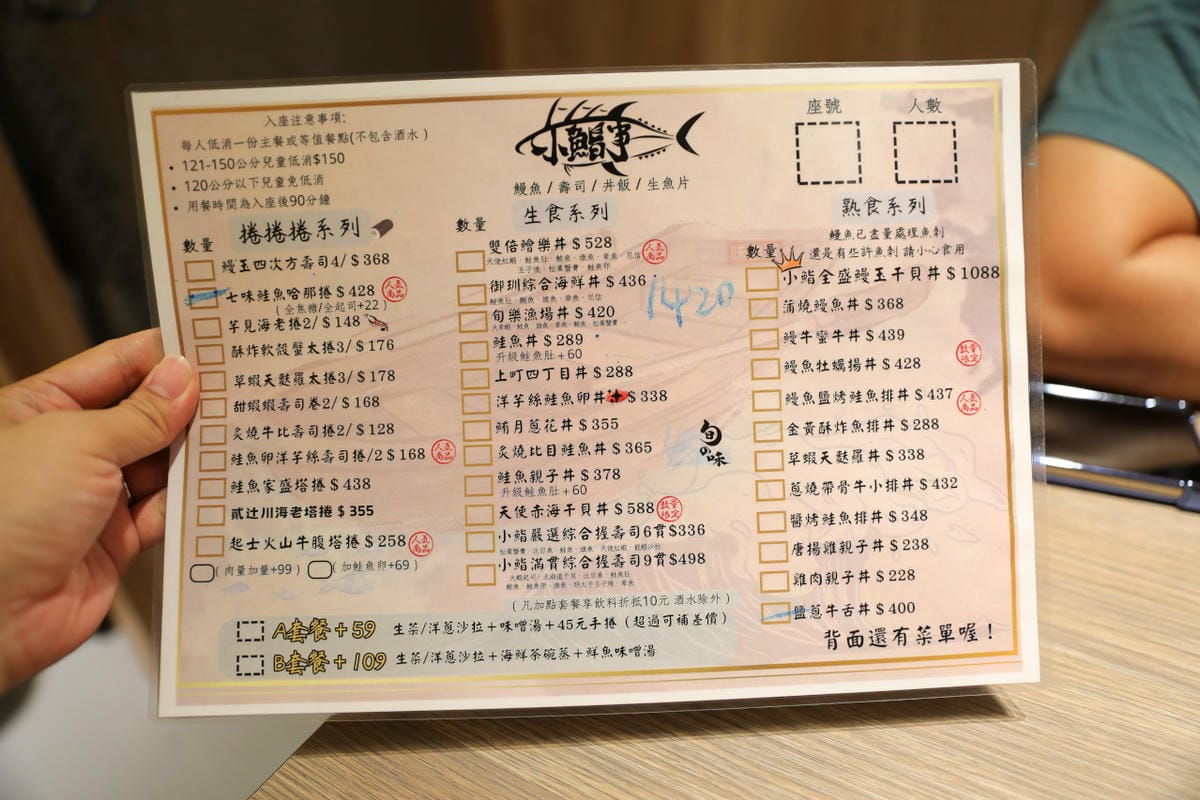 入座注意事項:
每人低消一份主餐或等值餐點(不包含酒水)
• 121-150公分兒童低消$150
• 120公分以下兒童免低消
• 用餐時間為入座後90分鐘
鰻魚/壽司/丼飯/生魚片
座號
人數
數量
捲捲捲系列
鰻玉四次方壽司4/$368
七味鮭魚哈那捲$428
人氣商品
(全焦糖/全起司+22)
芋見海老捲2/$148
酥炸軟殼蟹太捲3/$176
草蝦天麩羅太捲3/$178
甜蝦蝦壽司卷2/$168
炙燒牛比壽司捲2/$128
鮭魚卵洋芋絲壽司捲/2$168
人氣商品
鮭魚家盛塔捲$438
貳辻川海老塔捲$355
起士火山牛腹塔捲$258
人氣商品
(肉量加量+99)
(加鮭魚卵+69)
數量
生食系列
雙倍繪樂丼$528
人氣商品
御玔綜合海鮮丼$436
1420
旬樂漁場丼$420
鮭魚丼$289
升級鮭魚肚+60
上町四丁目丼$288
洋芋絲鮭魚卵丼$338
鮪月蔥花丼$355
旬の味
炙燒比目鮭魚丼$365
鮭魚親子丼$378
升級鮭魚肚+60
天使赤海干貝丼$588
數量限定
小鮨嚴選綜合握壽司6貫$336
小鮨滿貫綜合握壽司9貫$498
(凡加點套餐享飲料折抵10元 酒水除外)
熟食系列
鰻魚已盡量處理魚刺
數量
還是有些許魚刺 請小心食用
小鮨全盛鰻玉干貝丼$1088
蒲燒鰻魚丼$368
鰻牛蠻牛丼$439
鰻魚牡蠣揚丼$428
數量限定
鰻魚鹽烤鮭魚排丼$437
人氣商品
金黃酥炸魚排丼$288
草蝦天麩羅丼$338
蔥燒帶骨牛小排丼$432
醬烤鮭魚排丼$348
唐揚雞親子丼$238
雞肉親子丼$228
鹽蔥牛舌丼$400
背面還有菜單喔!
A套餐+59 生菜/洋蔥沙拉+味噌湯+45元手捲(超過可補差價)
B套餐+109 生菜/洋蔥沙拉+海鮮茶碗蒸+鮮魚味噌湯